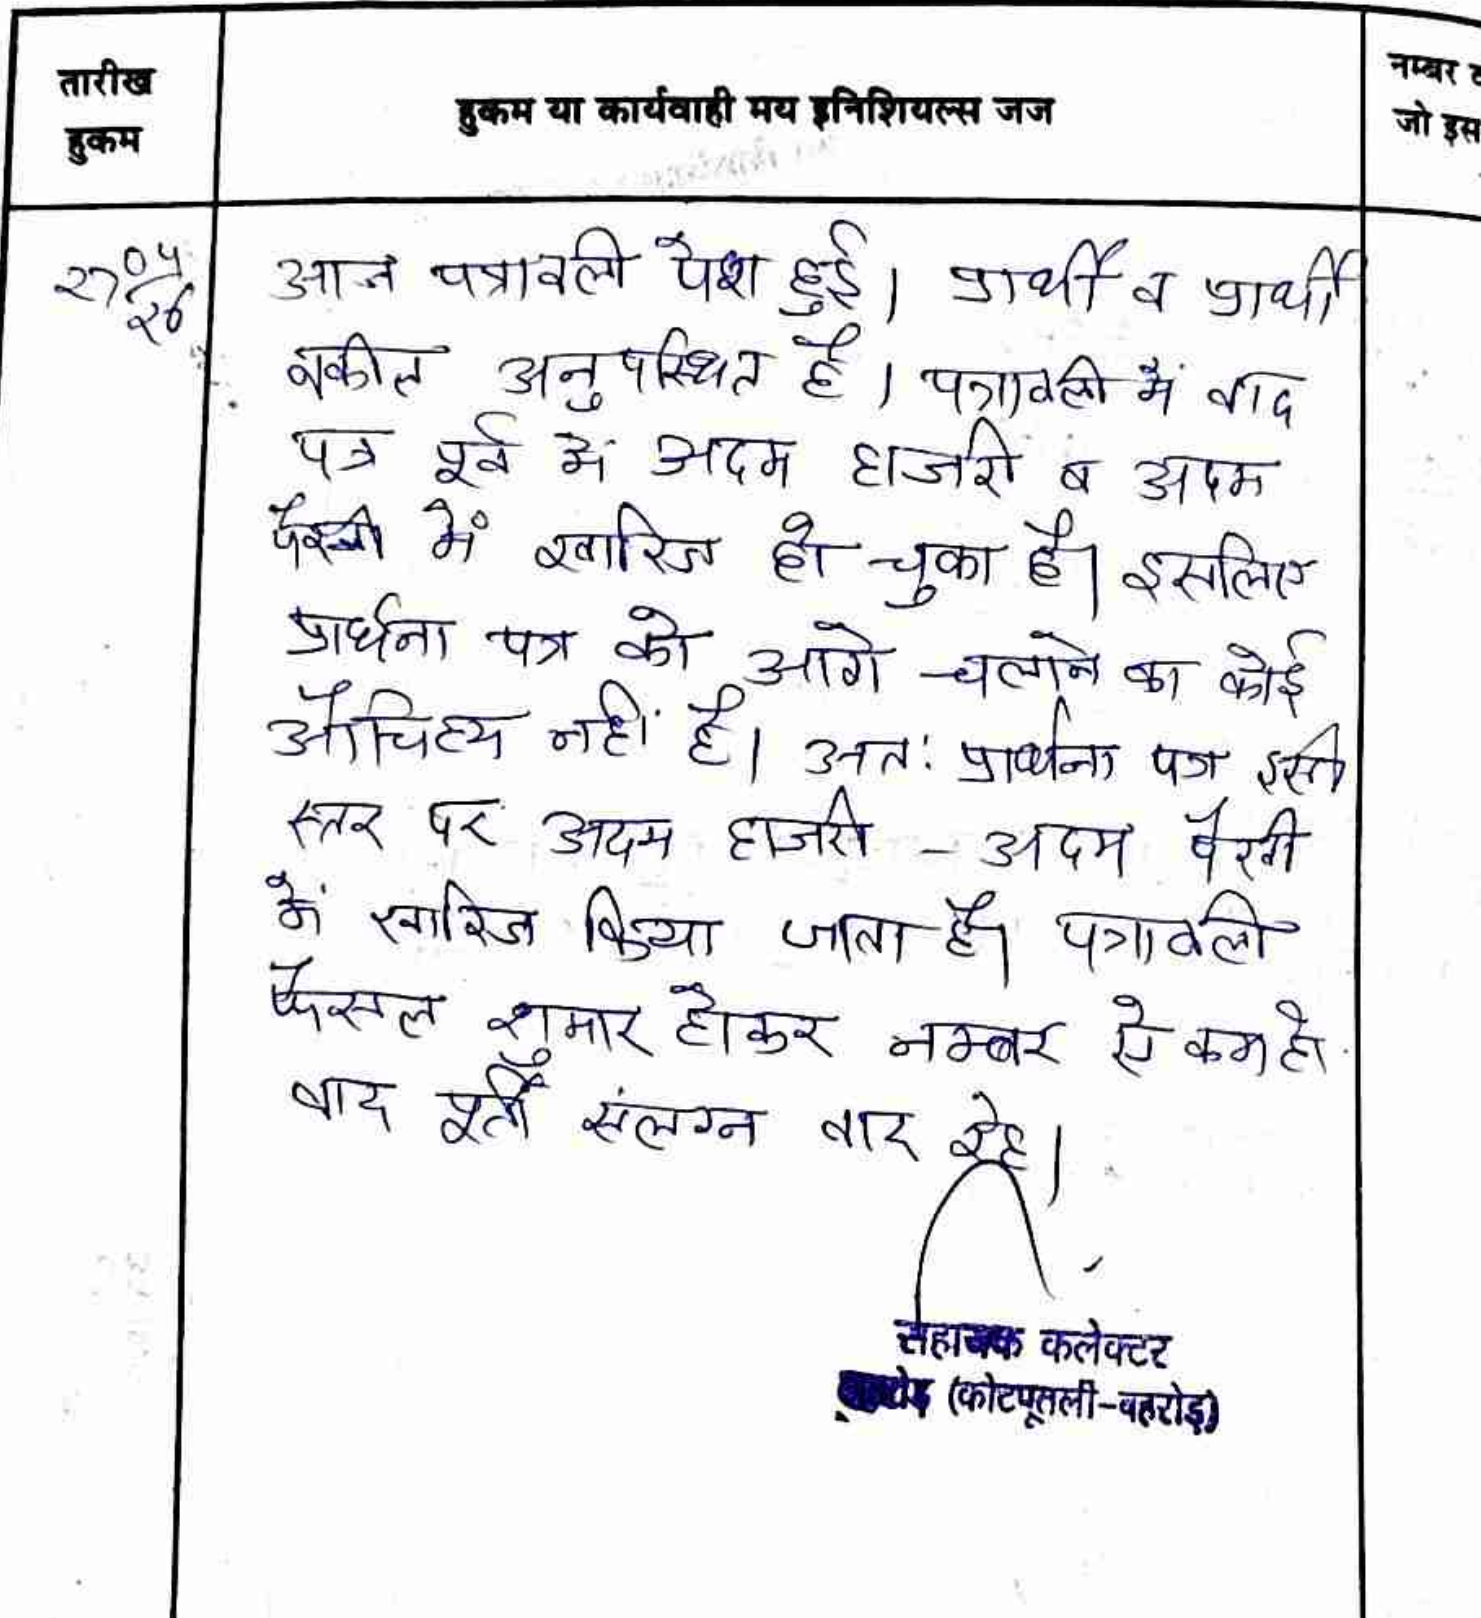 तारीख
हुकम
हुकम या कार्यवाही मय इनिशियल्स जज
नम्बर
जो इस
२७ ०५
२६
आज पत्रावली पेश हुई। प्रार्थी व प्रार्थी
वकील अनुपस्थित है। पत्रावली में वाद
पत्र पूर्व में अदम हाजरी व अदम
पैरवी में खारिज हो चुका है। इसलिए
प्रार्थना पत्र को आगे चलाने का कोई
औचित्य नहीं है। अतः प्रार्थना पत्र इसी
स्तर पर अदम हाजरी - अदम पैरवी
में खारिज किया जाता है। पत्रावली
फैसल शुमार होकर नम्बर से कम हो
बाद पूर्ती संलग्न वाद रहे।
सहायक कलेक्टर
(कोटपूतली-बहरोड़)